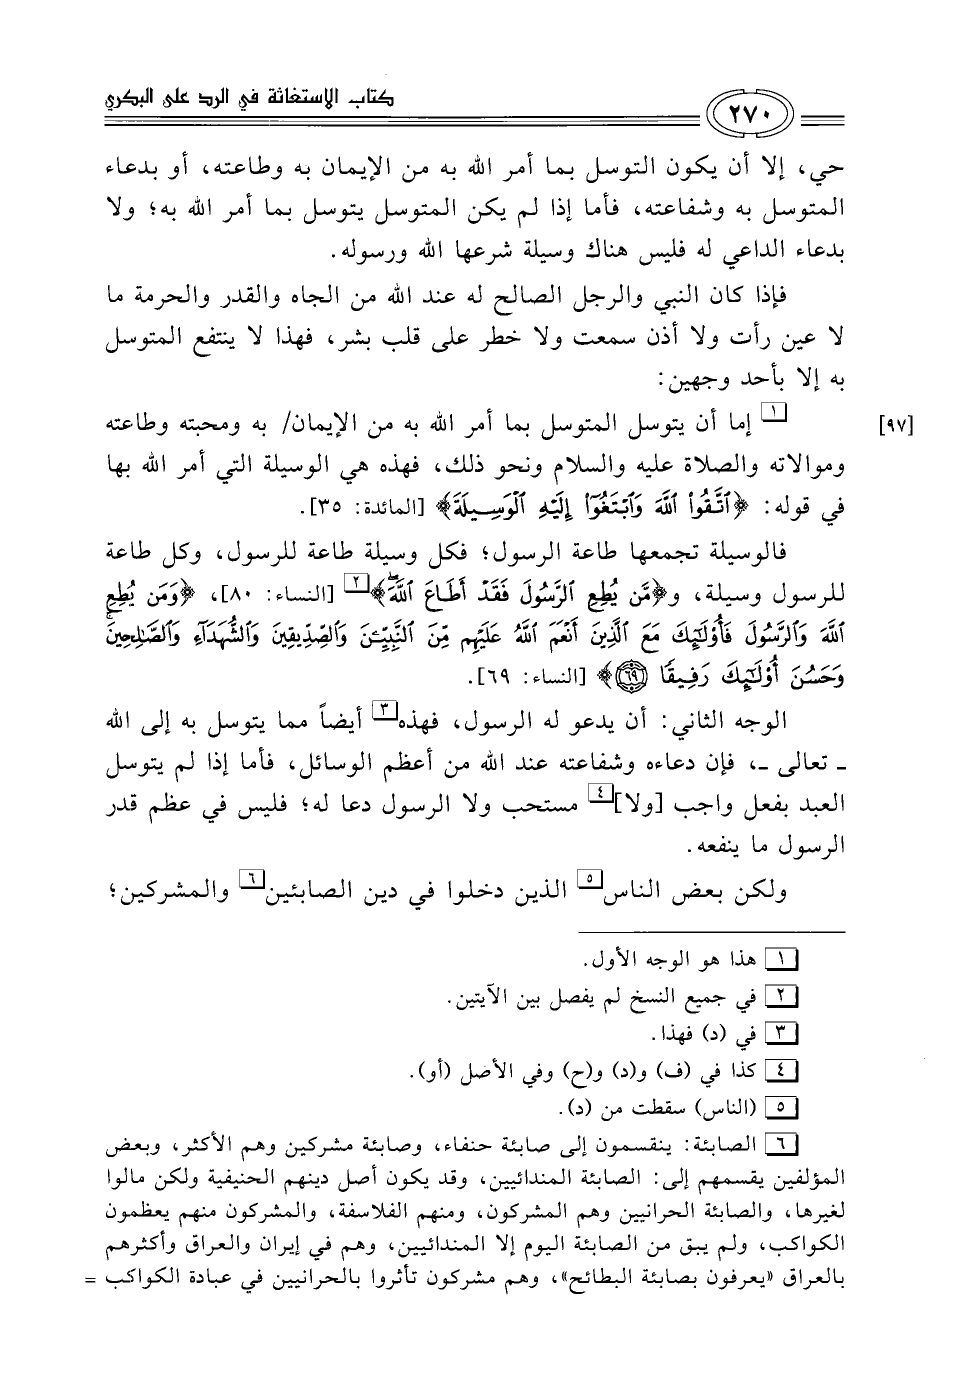 كتاب الاستغاثة في الرد على البكري
٢٧٠
حي، إلا أن يكون التوسل بما أمر الله به من الإيمان به وطاعته، أو بدعاء
المتوسل به وشفاعته، فأما إذا لم يكن المتوسل يتوسل بما أمر الله به؛ ولا
بدعاء الداعي له فليس هناك وسيلة شرعها الله ورسوله.
فإذا كان النبي والرجل الصالح له عند الله من الجاه والقدر والحرمة ما
لا عين رأت ولا أذن سمعت ولا خطر على قلب بشر، فهذا لا ينتفع المتوسل
به إلا بأحد وجهين:
[٩٧] ١ إما أن يتوسل المتوسل بما أمر الله به من الإيمان/ به ومحبته وطاعته
وموالاته والصلاة عليه والسلام ونحو ذلك، فهذه هي الوسيلة التي أمر الله بها
في قوله: ﴿ٱتَّقُوا۟ ٱللَّهَ وَٱبْتَغُوٓا۟ إِلَيْهِ ٱلْوَسِيلَةَ﴾ [المائدة: ٣٥].
فالوسيلة تجمعها طاعة الرسول؛ فكل وسيلة طاعة للرسول، وكل طاعة
للرسول وسيلة، و﴿مَّن يُطِعِ ٱلرَّسُولَ فَقَدْ أَطَاعَ ٱللَّهَۖ﴾٢ [النساء: ٨٠]، ﴿وَمَن يُطِعِ
ٱللَّهَ وَٱلرَّسُولَ فَأُو۟لَٰٓئِكَ مَعَ ٱلَّذِينَ أَنْعَمَ ٱللَّهُ عَلَيْهِم مِّنَ ٱلنَّبِيِّـۧنَ وَٱلصِّدِّيقِينَ وَٱلشُّهَدَآءِ وَٱلصَّٰلِحِينَۚ
وَحَسُنَ أُو۟لَٰٓئِكَ رَفِيقًا ۝٦٩﴾ [النساء: ٦٩].
الوجه الثاني: أن يدعو له الرسول، فهذه٣ أيضاً مما يتوسل به إلى الله
ـ تعالى ـ، فإن دعاءه وشفاعته عند الله من أعظم الوسائل، فأما إذا لم يتوسل
العبد بفعل واجب [ولا]٤ مستحب ولا الرسول دعا له؛ فليس في عظم قدر
الرسول ما ينفعه.
ولكن بعض الناس٥ الذين دخلوا في دين الصابئين٦ والمشركين؛
١ هذا هو الوجه الأول.
٢ في جميع النسخ لم يفصل بين الآيتين.
٣ في (د) فهذا.
٤ كذا في (ف) و(د) و(ح) وفي الأصل (أو).
٥ (الناس) سقطت من (د).
٦ الصابئة: ينقسمون إلى صابئة حنفاء، وصابئة مشركين وهم الأكثر، وبعض
المؤلفين يقسمهم إلى: الصابئة المندائيين، وقد يكون أصل دينهم الحنيفية ولكن مالوا
لغيرها، والصابئة الحرانيين وهم المشركون، ومنهم الفلاسفة، والمشركون منهم يعظمون
الكواكب، ولم يبق من الصابئة اليوم إلا المندائيين، وهم في إيران والعراق وأكثرهم
بالعراق «يعرفون بصابئة البطائح»، وهم مشركون تأثروا بالحرانيين في عبادة الكواكب =